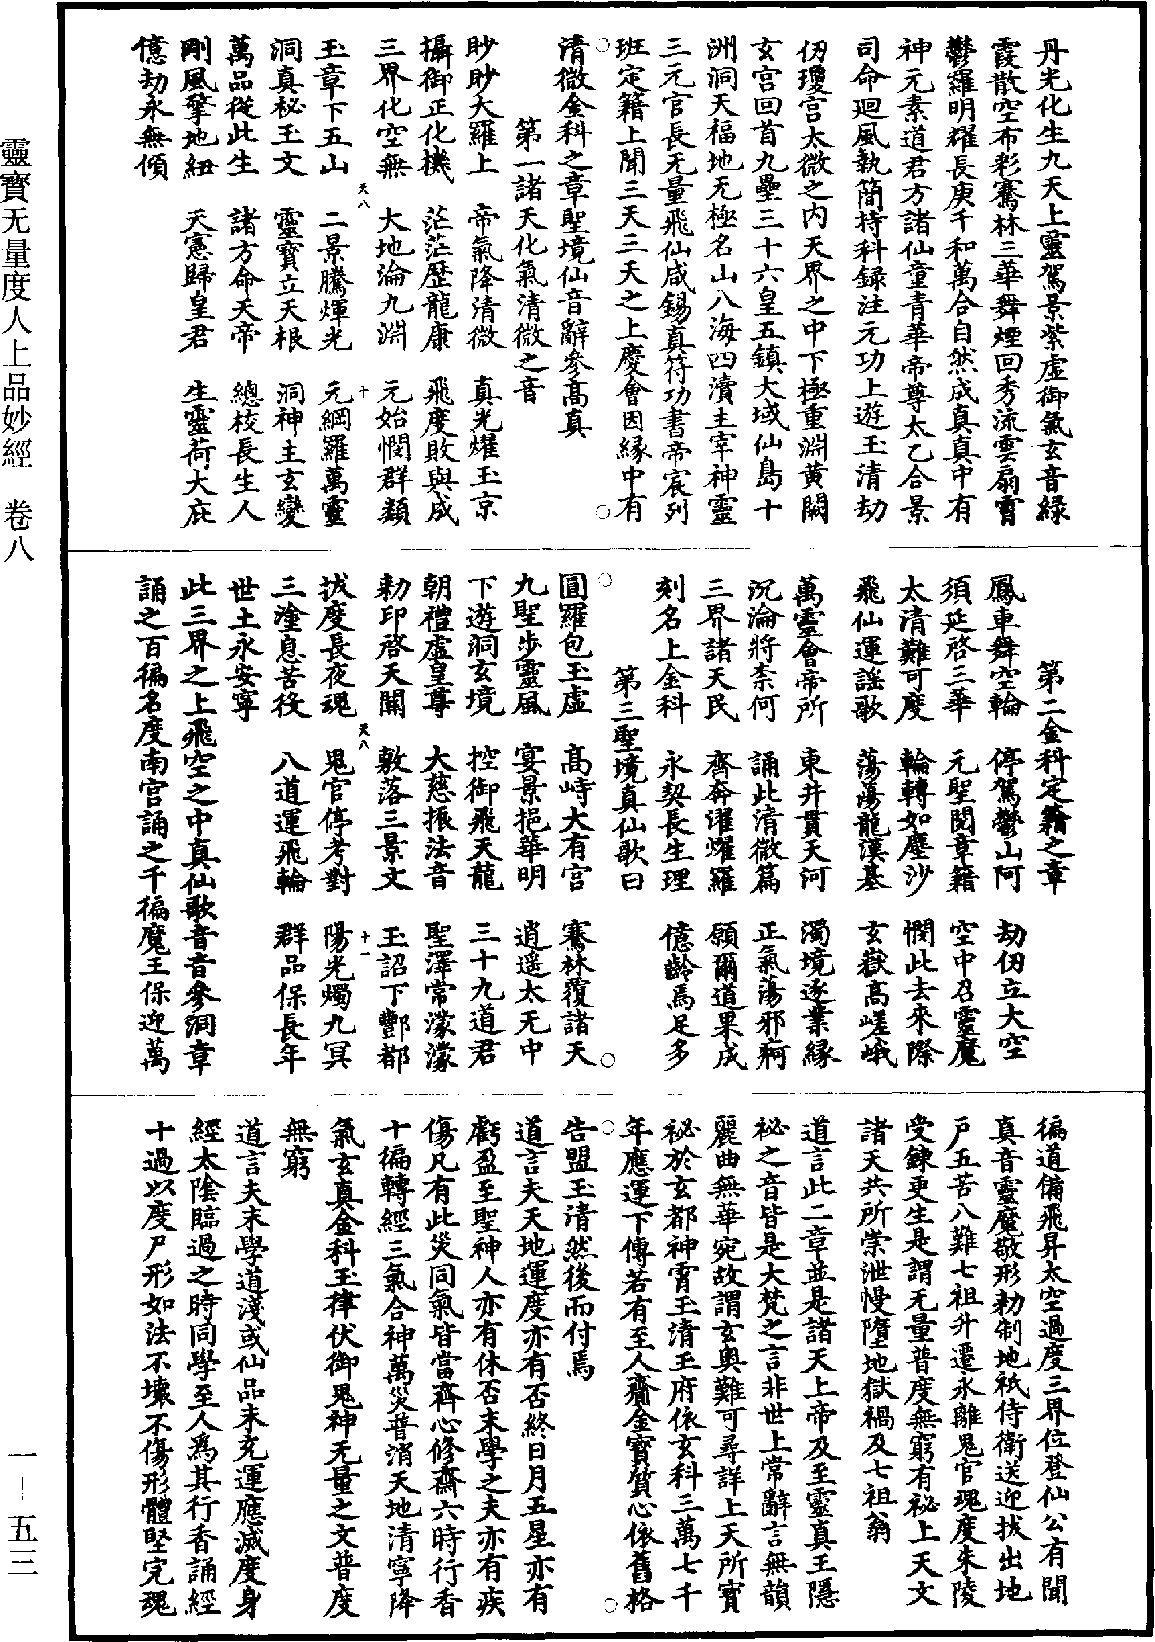 丹光化生九天上靈駕景紫虛御氣玄音綠
霞散空布彩騫林三華舞煙回秀流雲扇霄
鬱羅明耀長庚千和萬合自然成真真中有
神元素道君方諸仙童青華帝尊太乙合景
司命廻風執簡持科録注元功上遊玉清劫
仞瓊宫太微之内天界之中下極重淵黄闕
玄宫回首九壘三十六皇五鎮大域仙島十
洲洞天福地无極名山八海四瀆主宰神靈
三元官長无量飛仙咸錫真符功書帝宸列
班定籍上聞三天三天之上慶會因緣中有
清微金科之章聖境仙音辭參高真
第一諸天化氣清微之音
眇眇大羅上 帝氣降清微 真光燿玉京
攝御正化機 茫茫歷龍康 飛度敗與成
三界化空無 大地淪九淵 元始憫群類
天八 十
玉章下五山 二景騰煇光 元綱羅萬靈
洞真祕玉文 靈寶立天根 洞神主玄變
萬品從此生 諸方命天帝 總校長生人
剛風擎地紐 天憲歸皇君 生靈荷大庇
億劫永無傾
第二金科定籍之章
鳳車舞空輪 停駕鬱山阿 劫仞立大空
須延啓三華 元聖閱章籍 空中召靈魔
太清難可度 輪轉如塵沙 憫此去來際
飛仙運謡歌 蕩蕩龍漢基 玄嶽高嵯峨
萬靈會帝所 東井貫天河 濁境逐業緣
沉淪將柰何 誦此清微篇 正氣蕩邪痾
三界諸天民 齊奔濯燿羅 願爾道果成
刻名上金科 永契長生理 億齡焉足多
第三聖境真仙歌曰
圓羅包玉虛 高峙大有宫 騫林覆諸天
九聖步靈風 宴景挹華明 逍遥太无中
下遊洞玄境 控御飛天龍 三十九道君
朝禮虛皇尊 大慈振法音 聖澤常濛濛
勑印啓天關 敷落三景文 玉詔下酆都
天八 十一
拔度長夜魂 鬼官停考對 陽光燭九冥
三塗息苦役 八道運飛輪 群品保長年
世土永安寧
此三界之上飛空之中真仙歌音音參洞章
誦之百徧名度南宫誦之千徧魔王保迎萬
徧道備飛昇太空過度三界位登仙公有聞
真音靈魔敬形勑制地祇侍衛送迎拔出地
户五苦八難七祖升遷永離鬼官魂度朱陵
受鍊更生是謂无量普度無窮有祕上天文
諸天共所崇泄慢墮地獄禍及七祖翁
道言此二章並是諸天上帝及至靈真王隱
祕之音皆是大梵之言非世上常辭言無韻
麗曲無華宛故謂玄奥難可尋詳上天所寶
祕於玄都神霄玉清玉府依玄科三萬七千
年應運下傳若有至人齎金寶質心依舊格
告盟玉清然後而付焉
道言夫天地運度亦有否終日月五星亦有
虧盈至聖神人亦有休否末學之夫亦有疾
傷凡有此災同氣皆當齊心修齋六時行香
十徧轉經三氣合神萬災普消天地清寧降
氣玄真金科玉律伏御鬼神无量之文普度
無窮
道言夫末學道淺或仙品未充運應滅度身
經太陰臨過之時同學至人爲其行香誦經
十過以度尸形如法不壞不傷形體堅完魂
靈寶无量度人上品妙經 卷八
一—五三